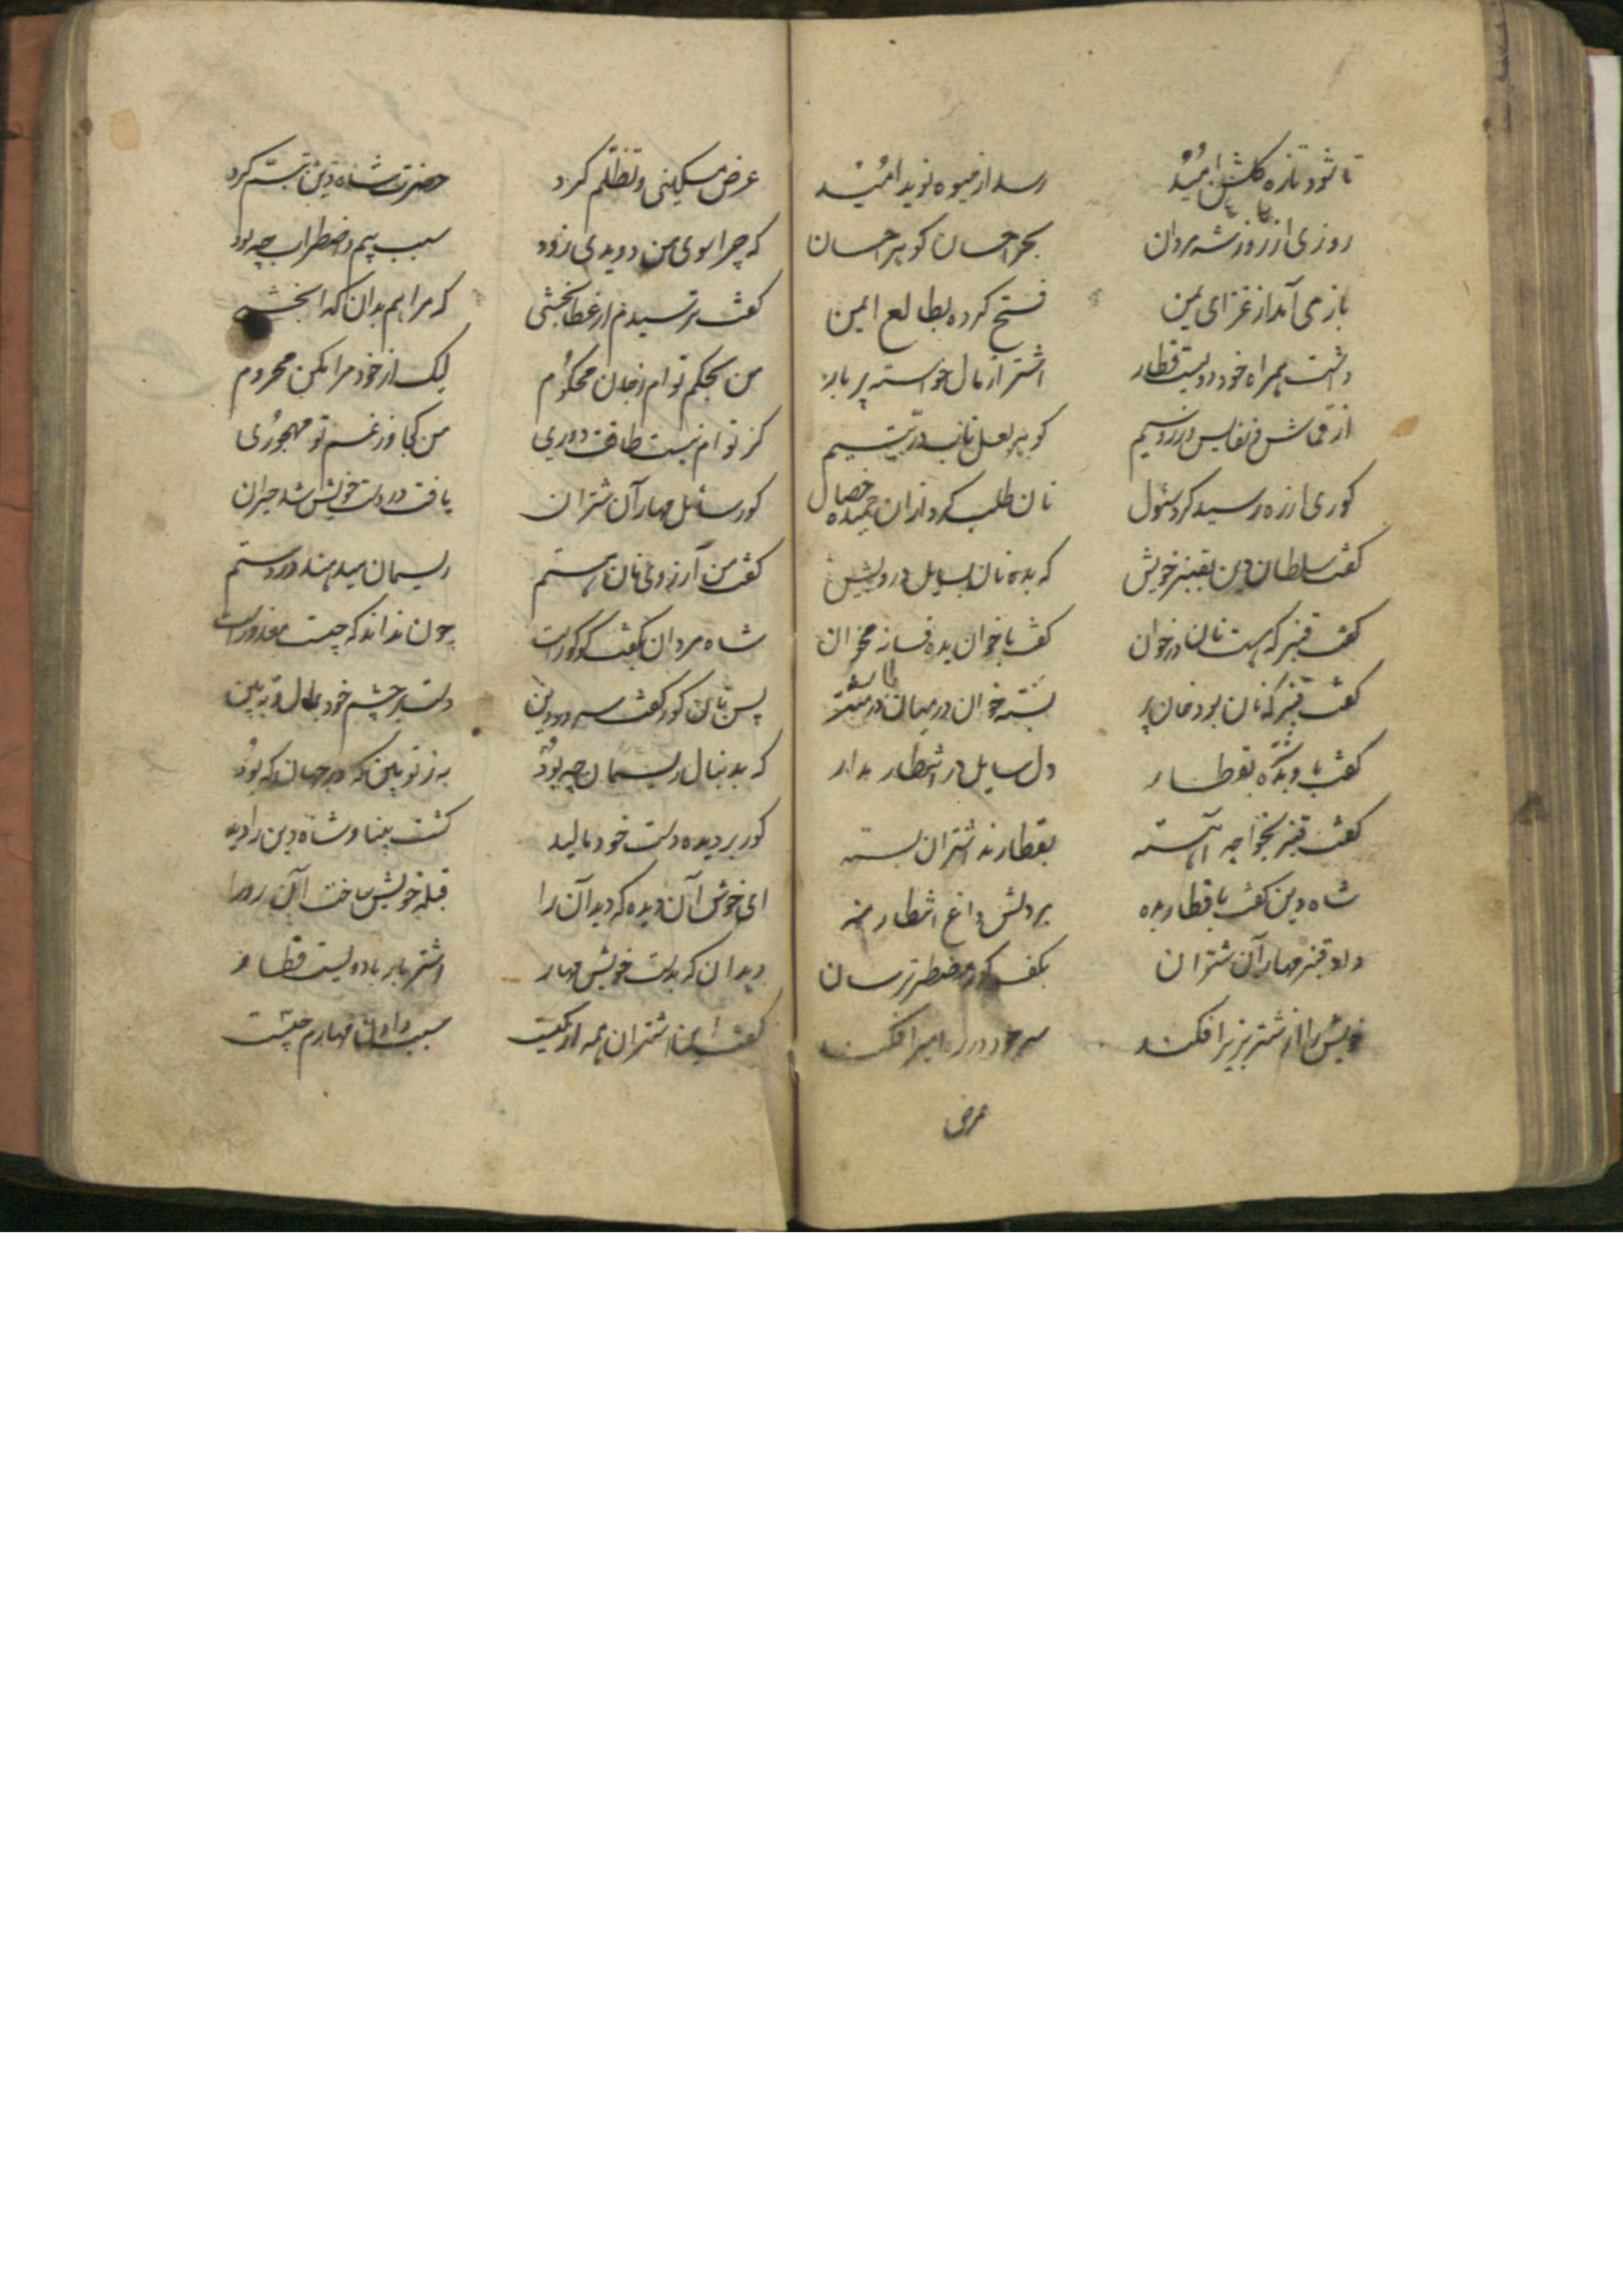 تا شود تازه گلشن امید رسد از میوه نوید امید
روزی از روزها شه مردان بحر احسان گوهر احسان
باز می آمد از غزای یمن فتح کرده بطالع ایمن
داشت همراه خود دویست قطار اشتر از مال خواسته پر بار
از قماش و نفایس و زر و سیم گوهر لعل ناب و در یتیم
کوری از ره رسید کرد سئول نان طلب کرد ازان حمیده خصال
گفت سلطان دین بقنبر خویش که بده نان بسایل درویش
گفت قنبر که هست نان در خوان گفت با خوان بده فسانه مخوان
گفت قنبر که نان بود بسته خوان در میان
گفت با وی بده بقطار دل سایل در انتظار مدار
گفت قنبر بخواجه آهسته بقطارند اشتران بسته
شاه دین گفت با قطار بده بر دلش داغ انتظار منه
داد قنبر مهار آن شتران بکف کور مضطر ترسان
خویش را از شتر بزیر افکند سر خود در
عرض
عرض مسکینی و تظلم کرد حضرت شاه دین تبسم کرد
که چرا سوی من دویدی زود سبب بیم و اضطراب چه بود
گفت ترسیدم از عطا بخشی که مرا هم بدان گدا بخشی
من بحکم توام ز جان محکوم لیک از خود مرا مکن محروم
کز توام نیست طاقت دوری من کجا و ز غم تو مهجوری
کور سائل مهار آن شتران یافت در دست خویش شد حیران
گفت من آرزوی نان هستم ریسمان میدهند در دستم
شاه مردان بگفت کو کور است چون نداند که چیست معذور است
پس بآن کور گفت سرور دین دست بر چشم خود بمال و ببین
که بدنبال ریسمان چه بود به ز تو بین که در جهان که بود
کور بر دیده دست خود مالید گشت بینا و شاه دین را دید
ای خوش آن دیده که دید آن را قبله خویش ساخت آن رو را
دید آن که بدست خویش مهار اشتر با بار با دویست قطار
گفت این اشتران همه از کیست سبب دادن مهارم چیست